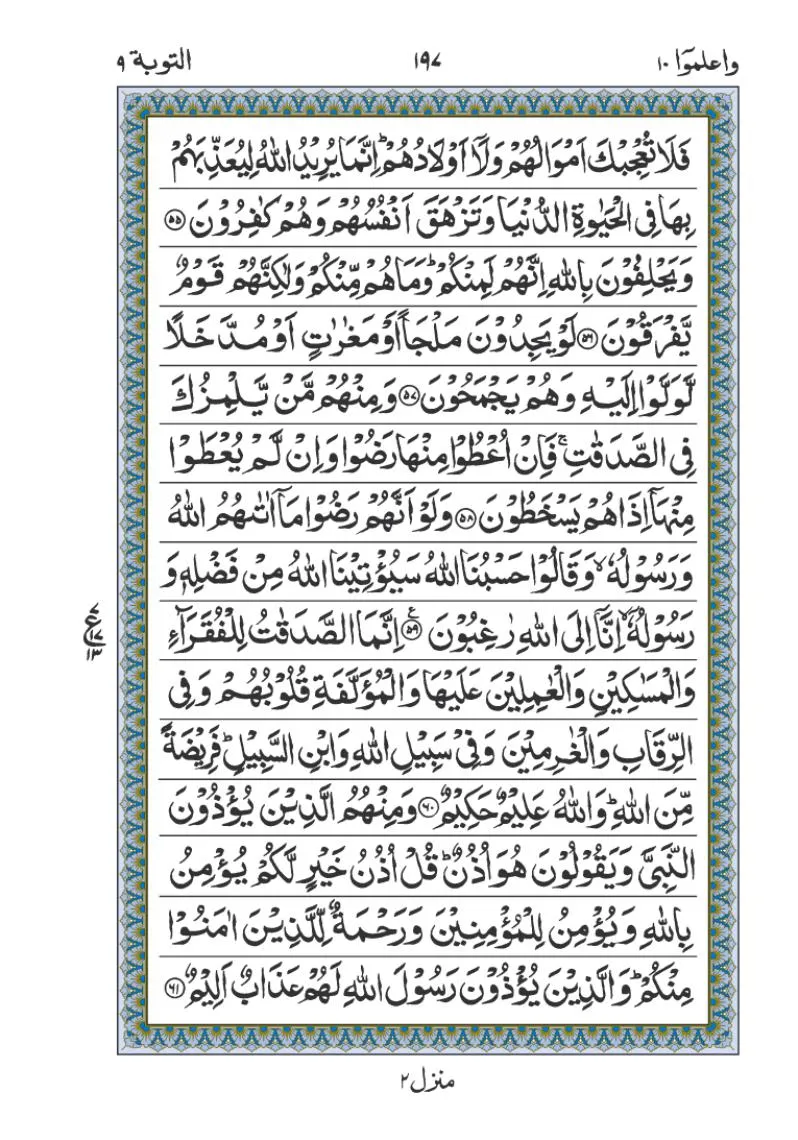 واعلموٓا ۱۰
۱۹۷
التوبة ۹
فَلَا تُعْجِبْكَ اَمْوَالُهُمْ وَلَآ اَوْلَادُهُمْ ؕ اِنَّمَا يُرِيْدُ اللّٰهُ لِيُعَذِّبَهُمْ
بِهَا فِى الْحَيٰوةِ الدُّنْيَا وَتَزْهَقَ اَنْفُسُهُمْ وَهُمْ كٰفِرُوْنَ ۝۵۵
وَيَحْلِفُوْنَ بِاللّٰهِ اِنَّهُمْ لَمِنْكُمْ ؕ وَمَا هُمْ مِّنْكُمْ وَلٰكِنَّهُمْ قَوْمٌ
يَّفْرَقُوْنَ ۝۵۶ لَوْ يَجِدُوْنَ مَلْجَاً اَوْ مَغٰرٰتٍ اَوْ مُدَّخَلًا
لَّوَلَّوْا اِلَيْهِ وَهُمْ يَجْمَحُوْنَ ۝۵۷ وَمِنْهُمْ مَّنْ يَّلْمِزُكَ
فِى الصَّدَقٰتِ ۚ فَاِنْ اُعْطُوْا مِنْهَا رَضُوْا وَاِنْ لَّمْ يُعْطَوْا
مِنْهَآ اِذَا هُمْ يَسْخَطُوْنَ ۝۵۸ وَلَوْ اَنَّهُمْ رَضُوْا مَآ اٰتٰىهُمُ اللّٰهُ
وَرَسُوْلُهٗ ۙ وَقَالُوْا حَسْبُنَا اللّٰهُ سَيُؤْتِيْنَا اللّٰهُ مِنْ فَضْلِهٖ وَ
رَسُوْلُهٗٓ ۙ اِنَّآ اِلَى اللّٰهِ رٰغِبُوْنَ ۝۵۹ۧ اِنَّمَا الصَّدَقٰتُ لِلْفُقَرَآءِ
ع ۷ ۱۷ ۱۳
وَالْمَسٰكِيْنِ وَالْعٰمِلِيْنَ عَلَيْهَا وَالْمُؤَلَّفَةِ قُلُوْبُهُمْ وَفِى
الرِّقَابِ وَالْغٰرِمِيْنَ وَفِىْ سَبِيْلِ اللّٰهِ وَابْنِ السَّبِيْلِ ؕ فَرِيْضَةً
مِّنَ اللّٰهِ ؕ وَاللّٰهُ عَلِيْمٌ حَكِيْمٌ ۝۶۰ وَمِنْهُمُ الَّذِيْنَ يُؤْذُوْنَ
النَّبِىَّ وَيَقُوْلُوْنَ هُوَ اُذُنٌ ؕ قُلْ اُذُنُ خَيْرٍ لَّكُمْ يُؤْمِنُ
بِاللّٰهِ وَيُؤْمِنُ لِلْمُؤْمِنِيْنَ وَرَحْمَةٌ لِّلَّذِيْنَ اٰمَنُوْا
مِنْكُمْ ؕ وَالَّذِيْنَ يُؤْذُوْنَ رَسُوْلَ اللّٰهِ لَهُمْ عَذَابٌ اَلِيْمٌ ۝۶۱
منزل ۲